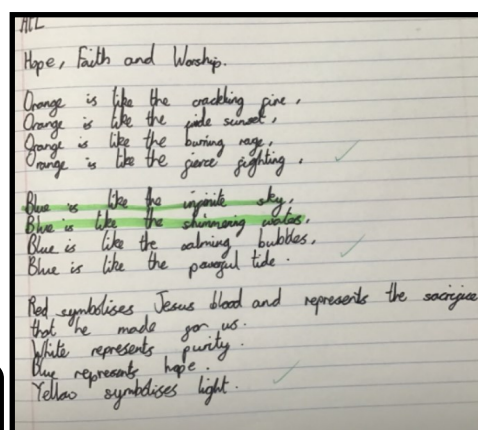 ATL
Hope, Faith and Worship.
Orange is like the crackling fire,
Orange is like the wide sunset,
Orange is like the burning rage,
Orange is like the fierce fighting,
Blue is like the infinite sky,
Blue is like the shimmering water,
Blue is like the calming bubbles,
Blue is like the powerful tide.
Red symbolises Jesus blood and represents the sacrifice
that he made for us.
White represents purity.
Blue represents hope.
Yellow symbolises light.